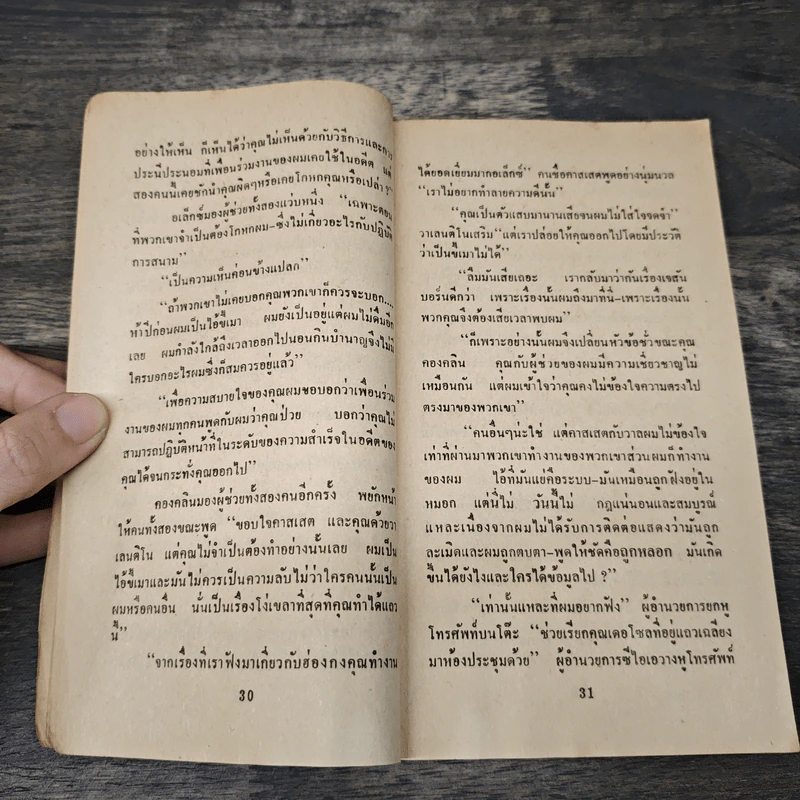 อย่างให้เห็น ก็เห็นได้ว่าคุณไม่เห็นด้วยกับวิธีการและการ
ประนีประนอมที่เพื่อนร่วมงานของผมเคยใช้ในอดีต แต่
สองคนนี้เคยชักนำคุณผิดๆหรือเคยโกหกคุณหรือเปล่า ?"
อเล็กซ์มองผู้ช่วยทั้งสองแว่บหนึ่ง "เฉพาะตอน
ที่พวกเขาจำเป็นต้องโกหกผม-ซึ่งไม่เกี่ยวอะไรกับปฏิบัติ
การสนาม"
"เป็นความเห็นค่อนข้างแปลก"
"ถ้าพวกเขาไม่เคยบอกคุณพวกเขาก็ควรจะบอก....
ห้าปีก่อนผมเป็นไอ้ขี้เมา ผมยังเป็นอยู่แต่ผมไม่ดื่มอีก
เลย ผมกำลังใกล้ถึงเวลาออกไปนอนกินบำนาญจึงไม่มี
ใครบอกอะไรผมซึ่งก็สมควรอยู่แล้ว"
"เพื่อความสบายใจของคุณผมขอบอกว่าเพื่อนร่วม
งานของผมทุกคนพูดกับผมว่าคุณป่วย บอกว่าคุณไม่
สามารถปฏิบัติหน้าที่ในระดับของความสำเร็จในอดีตของ
คุณได้จนกระทั่งคุณออกไป"
คองคลินมองผู้ช่วยทั้งสองคนอีกครั้ง พยักหน้า
ให้คนทั้งสองขณะพูด "ขอบใจคาสเสต และคุณด้วยวา
เลนติโน แต่คุณไม่จำเป็นต้องทำอย่างนั้นเลย ผมเป็น
ไอ้ขี้เมาและมันไม่ควรเป็นความลับไม่ว่าใครคนนั้นเป็น
ผมหรือคนอื่น นั่นเป็นเรื่องโง่เขลาที่สุดที่คุณทำได้แถว
นี้"
"จากเรื่องที่เราฟังมาเกี่ยวกับฮ่องกงคุณทำงาน
30
ได้ยอดเยี่ยมมากอเล็กซ์" คนชื่อคาสเสตพูดอย่างนุ่มนวล
"เราไม่อยากทำลายความดีนั้น"
"คุณเป็นตัวแสบมานานเสียจนผมไม่ใส่ใจจดจำ"
วาเลนติโนเสริม"แต่เราปล่อยให้คุณออกไปโดยมีประวัติ
ว่าเป็นขี้เมาไม่ได้"
"ลืมมันเสียเถอะ เรากลับมาว่ากันเรื่องเจสัน
บอร์นดีกว่า เพราะเรื่องนั้นผมถึงมาที่นี่-เพราะเรื่องนั้น
พวกคุณจึงต้องเสียเวลาพบผม"
"ก็เพราะอย่างนั้นผมจึงเปลี่ยนหัวข้อชั่วขณะคุณ
คองคลิน คุณกับผู้ช่วยของผมมีความเชี่ยวชาญไม่
เหมือนกัน แต่ผมเข้าใจว่าคุณคงไม่ข้องใจความตรงไป
ตรงมาของพวกเขา"
"คนอื่นๆน่ะใช่ แต่คาสเสตกับวาลผมไม่ข้องใจ
เท่าที่ผ่านมาพวกเขาทำงานของพวกเขาส่วนผมก็ทำงาน
ของผม ไอ้ที่มันแย่คือระบบ-มันเหมือนถูกฝังอยู่ใน
หมอก แต่นี่ไม่ วันนี้ไม่ กฎแน่นอนและสมบูรณ์
แหละเนื่องจากผมไม่ได้รับการติดต่อแสดงว่ามันถูก
ละเมิดและผมถูกตบตา-พูดให้ชัดคือถูกหลอก มันเกิด
ขึ้นได้ยังไงและใครได้ข้อมูลไป ?"
"เท่านั้นแหละที่ผมอยากฟัง" ผู้อำนวยการยกหู
โทรศัพท์บนโต๊ะ "ช่วยเรียกคุณเดอโซลที่อยู่แถวเฉลียง
มาห้องประชุมด้วย" ผู้อำนวยการซีไอเอวางหูโทรศัพท์
31